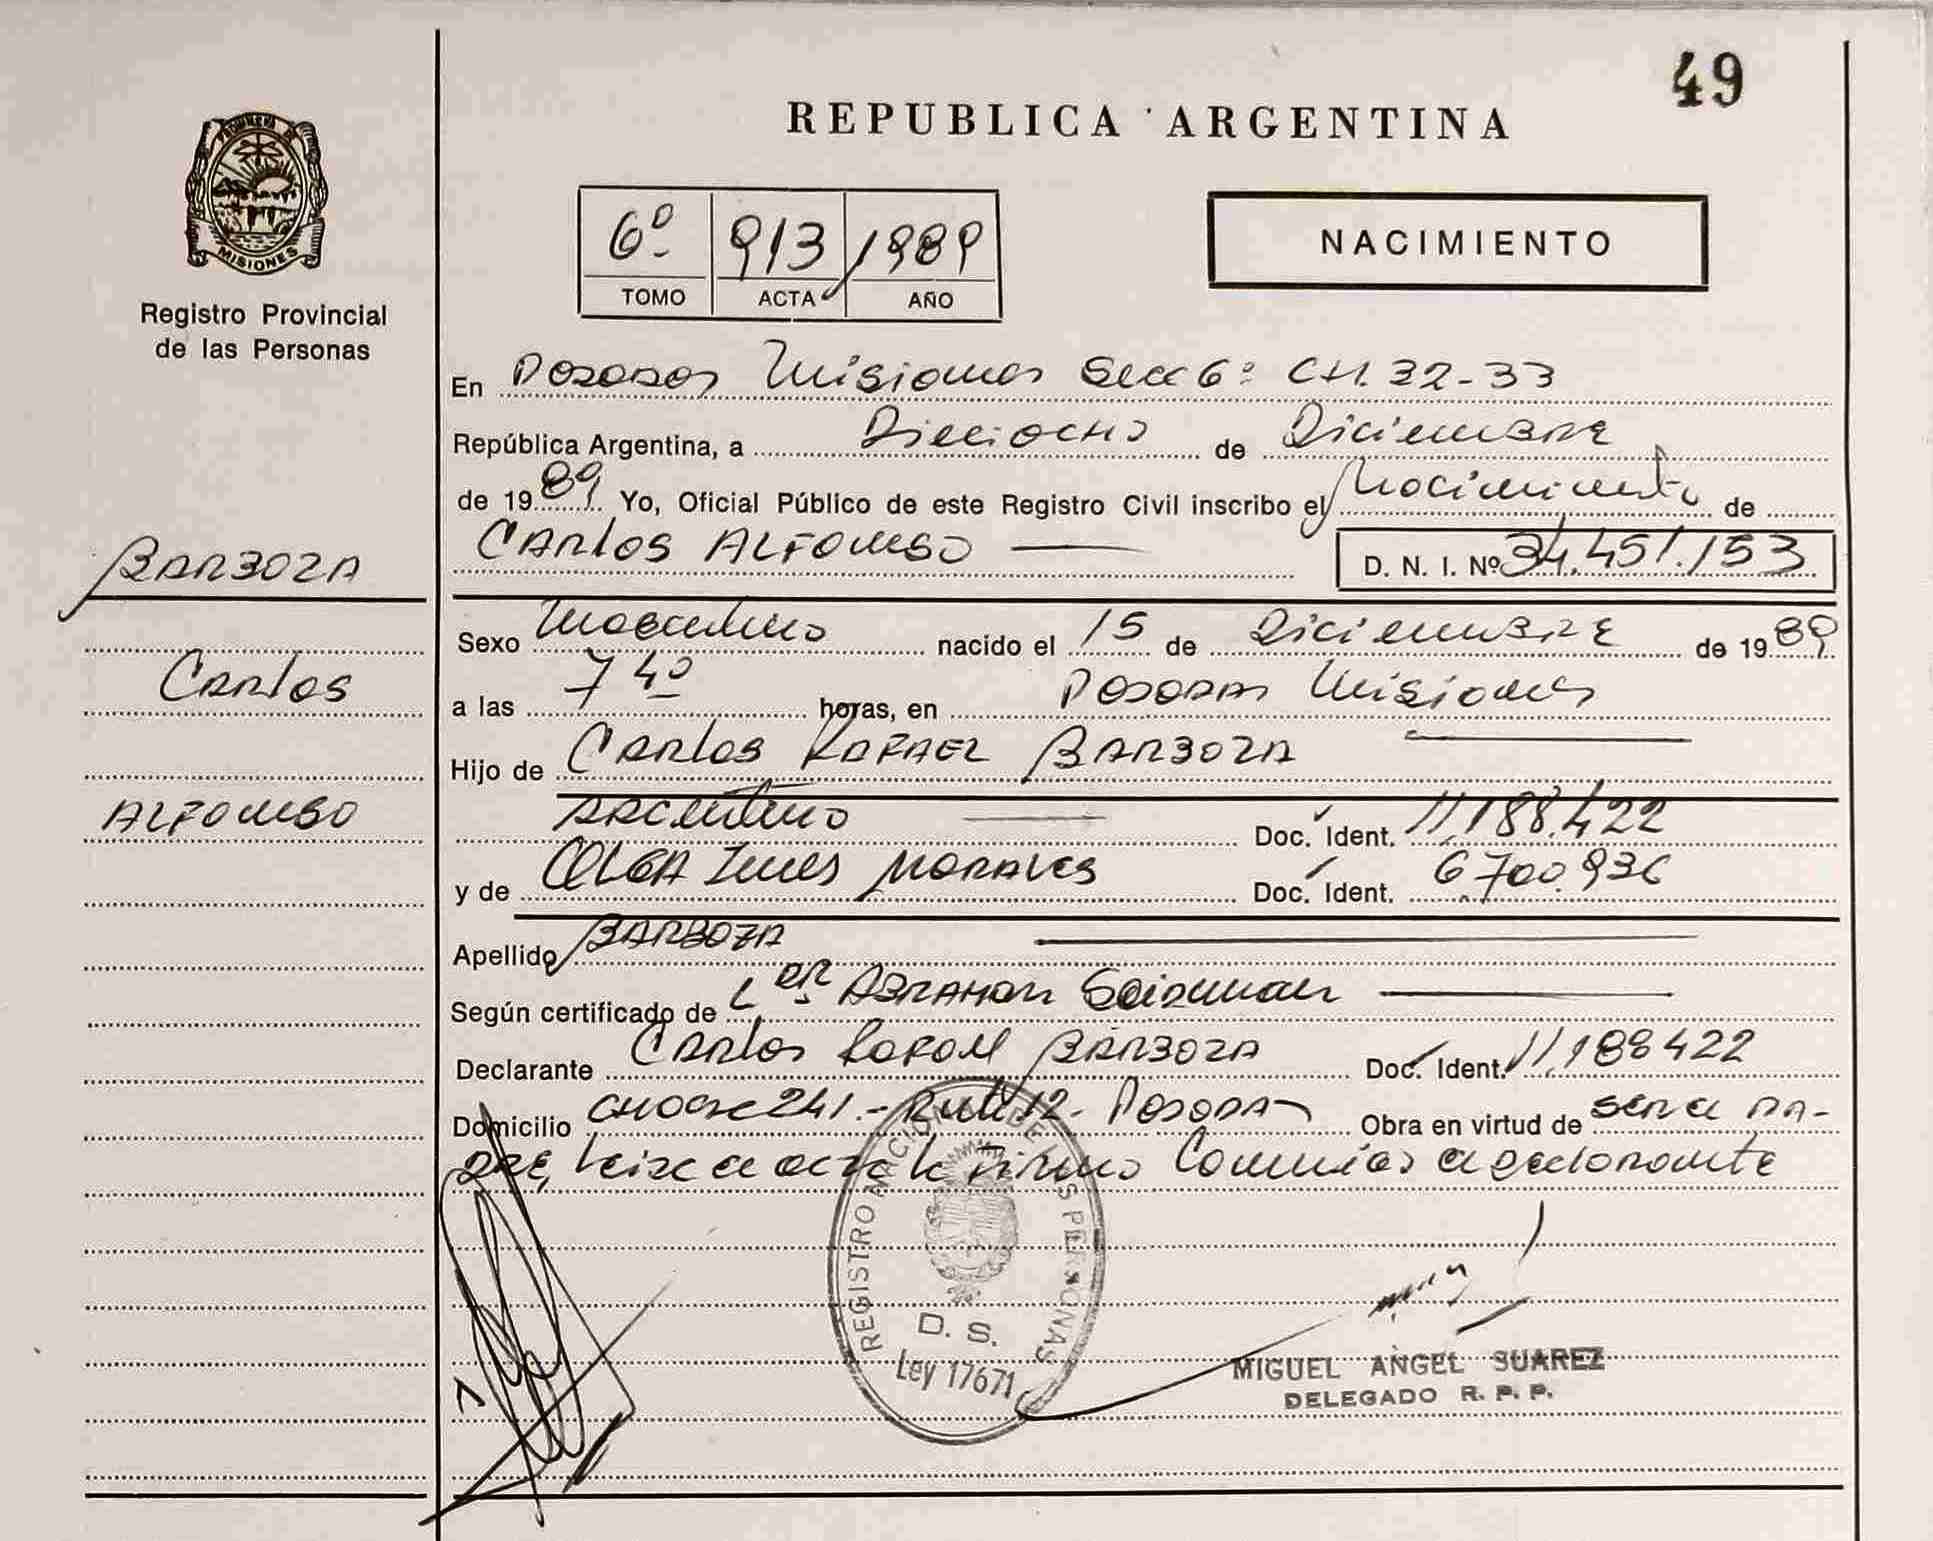 49
REPUBLICA ARGENTINA
PROVINCIA DE
MISIONES
Registro Provincial
de las Personas
6º 913 1989
TOMO ACTA AÑO
NACIMIENTO
En Posadas Misiones Secc 6º CH. 32-33
República Argentina, a Dieciocho de Diciembre
de 1989 Yo, Oficial Público de este Registro Civil inscribo el Nacimiento de
CARlos ALFONSO D. N. I. Nº 34.451.153
BARBOZA
Carlos
ALFONSO
Sexo Masculino nacido el 15 de Diciembre de 1989
a las 7 40 horas, en Posadas Misiones
Hijo de Carlos RAFAEL BARBOZA
ARGentino Doc. Ident. 11.188.422
y de OLGA Ines MORALes Doc. Ident. 6.700.936
Apellido BARBOZA
Según certificado de ABRAHAM
Declarante Carlos Rafael BARBOZA Doc. Ident. 11.188422
Domicilio CHACRA 241.- Ruta 12- Posadas Obra en virtud de ser el PA-
DRE, leida el acta la firma Conmigo el declarante
REGISTRO NACIONAL DE LAS PERSONAS
D. S.
Ley 17671
MIGUEL ANGEL SUAREZ
DELEGADO R. P. P.